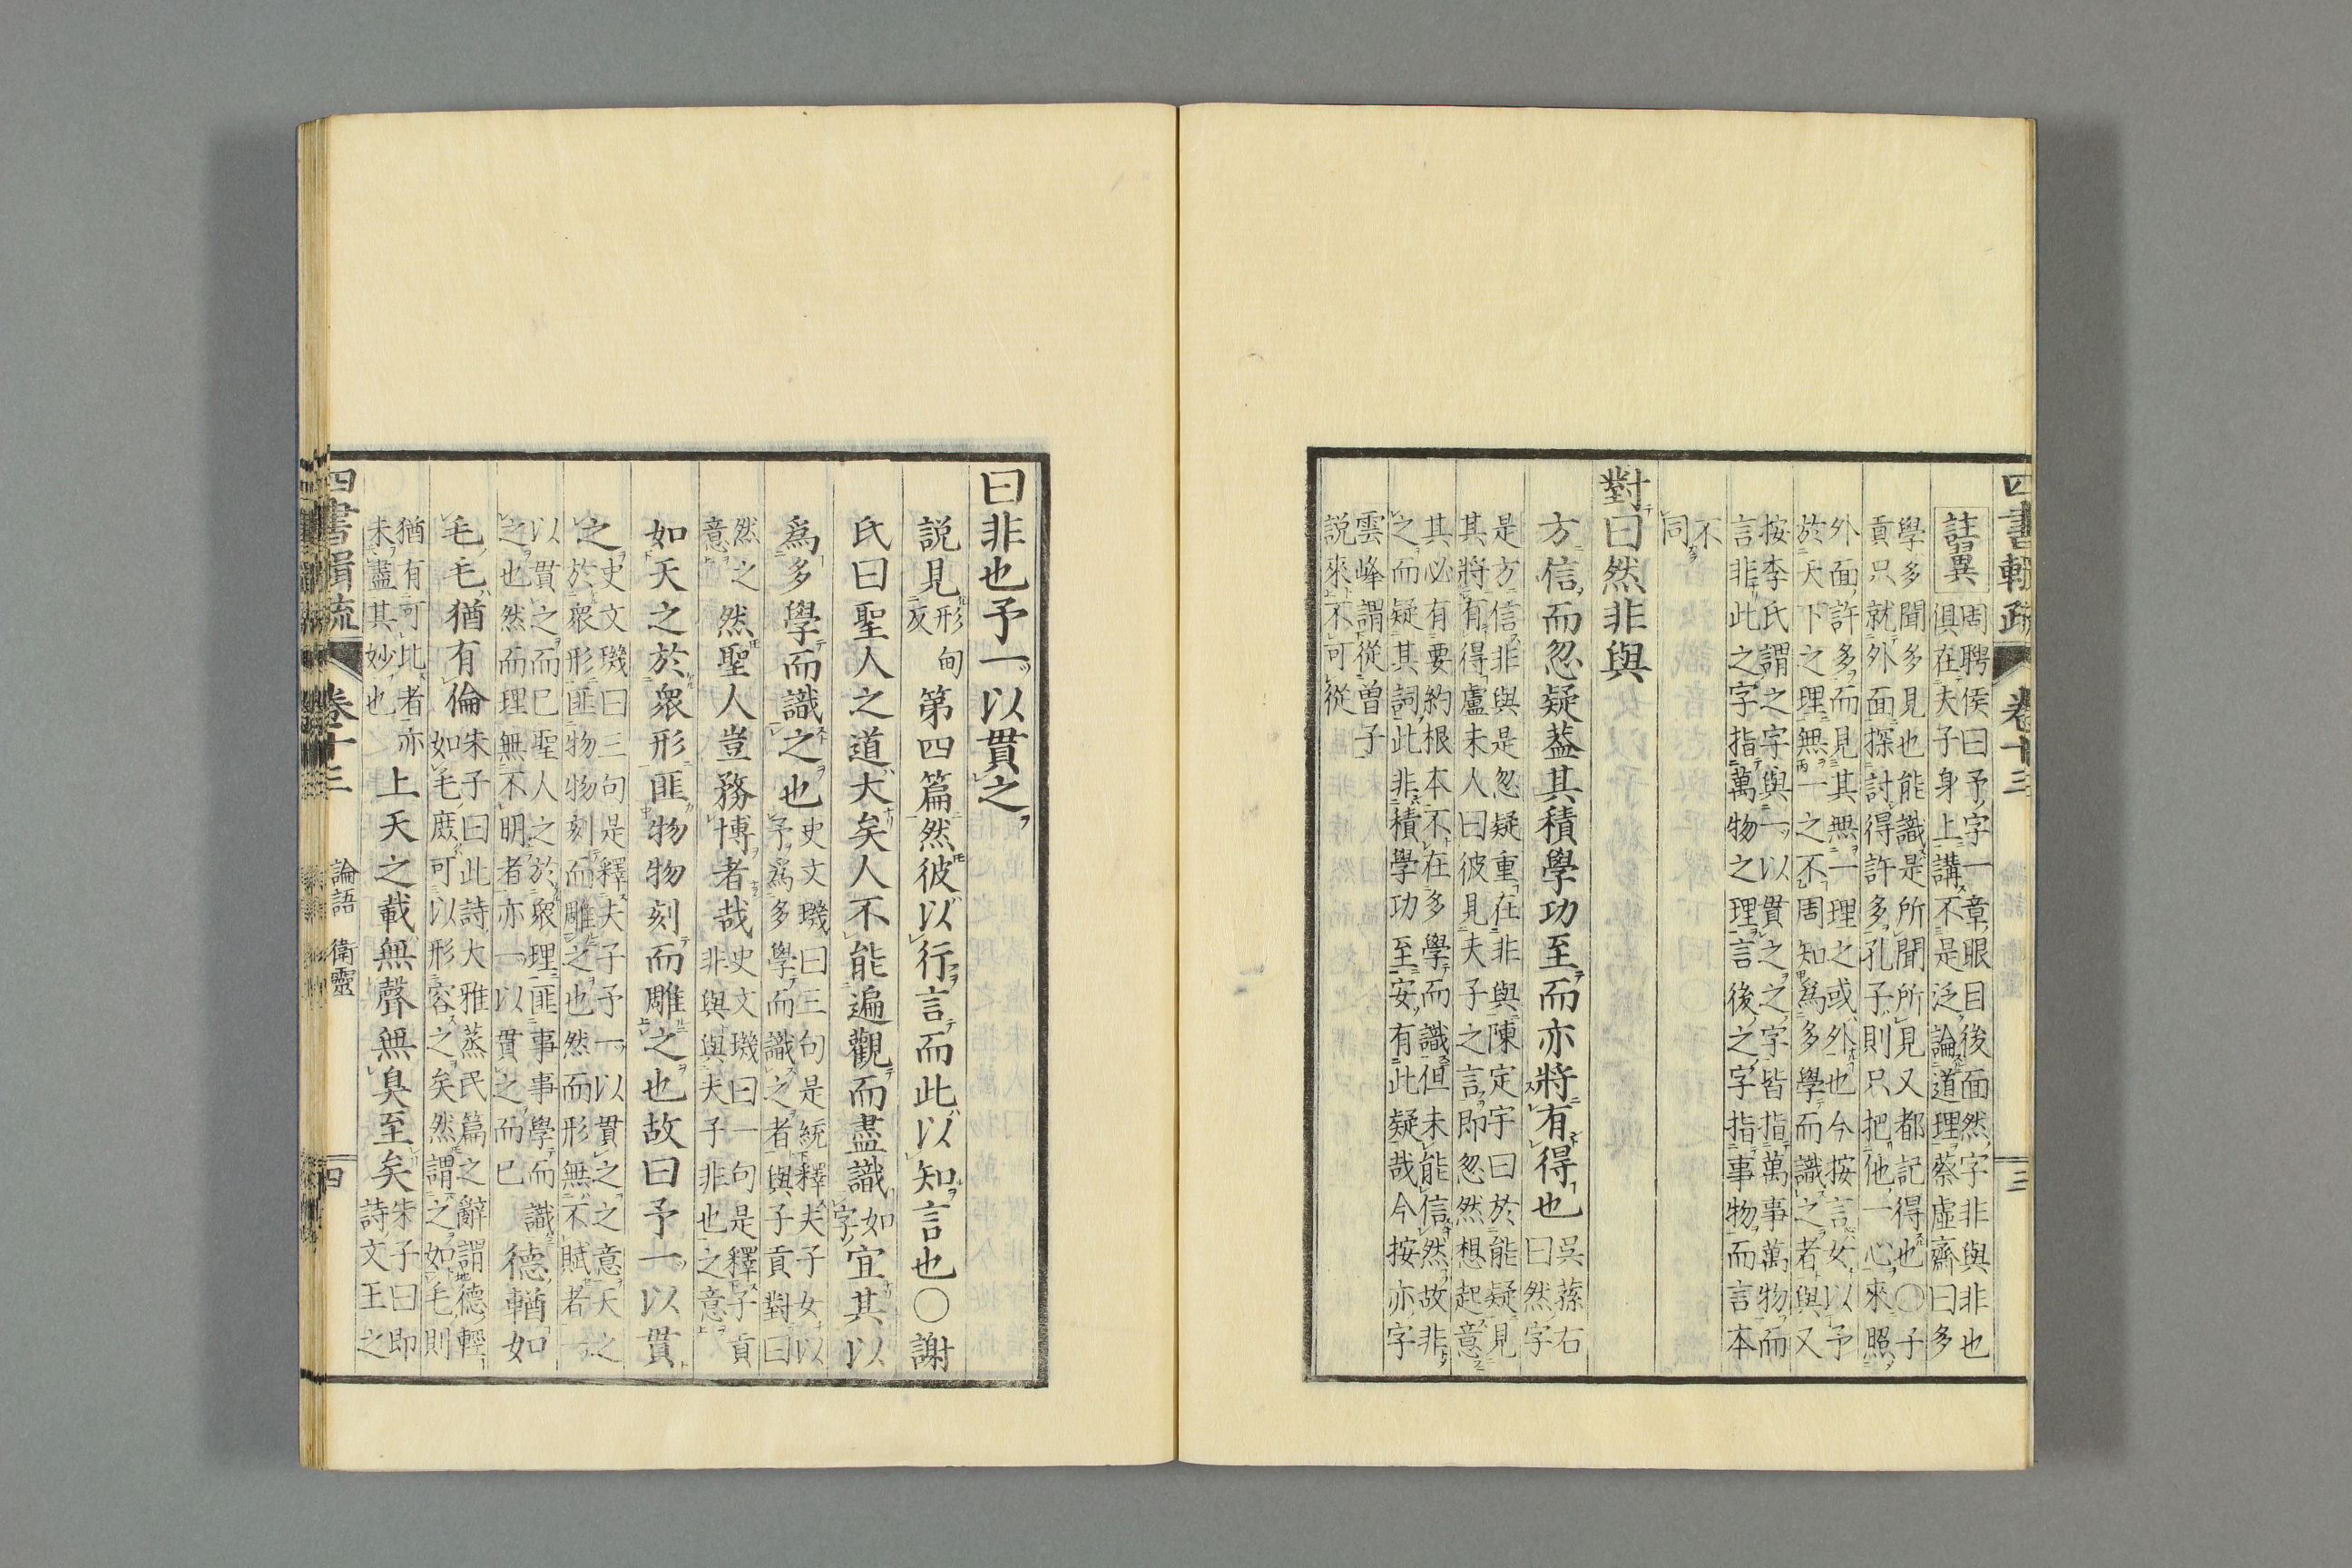 四書輯疏 卷十三 三
註翼 周聘侯曰予字一章眼目後面然字非與非也
俱在夫子身上講不是泛論道理蔡虛齋曰多
學多聞多見也能識是所聞所見又都記得也〇子
貢只就外面探討得許多孔子則只把他一心來照
外面許多而見其無一理之或外也今按言女以予
於天下之理無一之不周知爲多學而識之者與又
按李氏謂之字與一以貫之之字皆指萬事萬物而
言非此之字指萬物之理言後之字指事物而言本
不
同
對曰然非與
方信而忽疑葢其積學功至而亦將有得也吳蓀右
曰然字
是方信非與是忽疑重在非與陳定宇曰於能疑見
其將有得盧未人曰彼見夫子之言即忽然想起意
其必有要約根本不在多學而識但未能信然故非
之而疑其詞此非積學功至安有此疑哉今按亦字
雲峰謂從曾子
説來不可從
曰非也予一以貫之
説見形甸
反第四篇然彼以行言而此以知言也〇謝
氏曰聖人之道大矣人不能遍觀而盡識如
字宜其以
爲多學而識之也史文璣曰三句是統釋夫子女以
予爲多學而識之者與子貢對曰
然之
意然聖人豈務博者哉史文璣曰一句是釋子貢
非與與夫子非也之意
如天之於衆形匪物物刻而雕之也故曰予一以貫
之史文璣曰三句是釋夫子予一以貫之之意天之
於衆形匪物物刻而雕之也然而形無不賦者一
以貫之而已聖人之於衆理匪事事學而識
之也然而理無不明者亦一以貫之而已德輶如
毛毛猶有倫朱子曰此詩大雅蒸民篇之辭謂德輕
如毛庶可以形容之矣然謂之如毛則
猶有可比者亦
未盡其妙也上天之載無聲無臭至矣朱子曰即
詩文王之
四書輯疏 卷十三 論語 衛靈 四